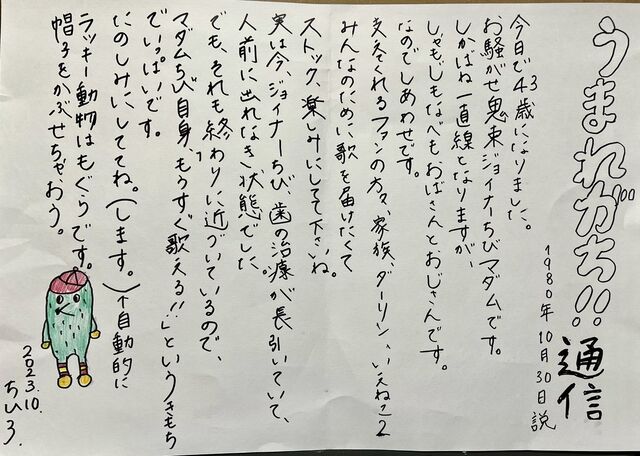 うまれがち!!通信
1980年10月30日説
今日で43歳になりました。
お騒がせ鬼束ジョイナーちびマダムです。
しかばね一直線となりますが、
しゃもしもなべもおばさんとおじさんです。
なのでしあわせです。
支えてくれるファンの方々、家族、ダーリン、いえねこ2
みんなのために歌を届けたくて
ストック、楽しみにしてて下さいね。
実は今、ジョイナーちび、歯の治療が長引いていて、
人前に出れなき状態でした。
でも、それも終わりに近づいているので、
マダムちび自身、もうすぐ歌える!!」というきもち
でいっぱいです。
にのしみにしててね。(します。)↑自動的に
ラッキー動物はもぐらです。
帽子をかぶせちゃおう。
2023.10.
ちひろ.